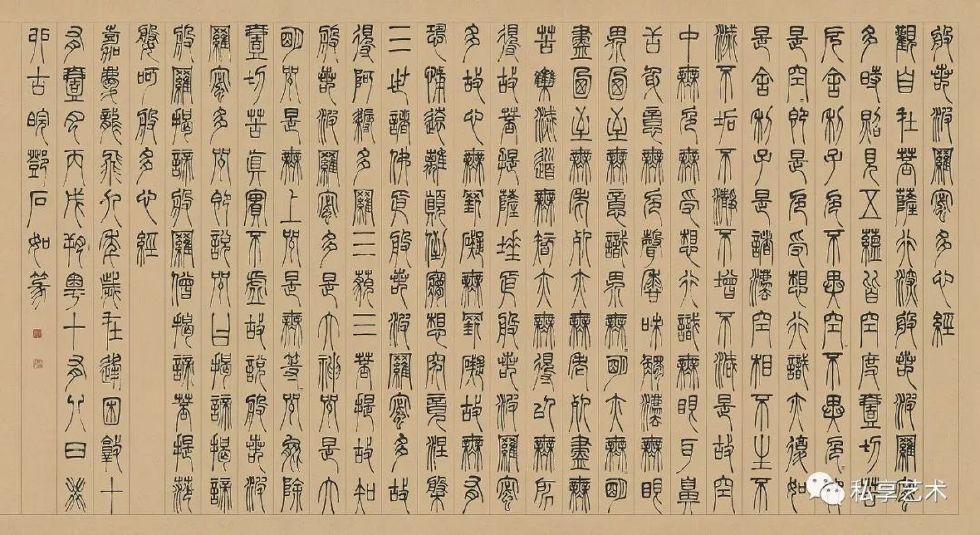 般若波羅蜜多心經
觀自在菩薩行深般若波羅蜜
多時照見五蘊皆空度壹切苦
厄舍利子色不異空不異色即
是空即是色受想行識亦復如
是舍利子是諸法空相不生不
滅不垢不淨不增不減是故空
中無色無受想行識無眼耳鼻
舌身意無色聲香味觸法無眼
界乃至無意識界無明亦無明
盡乃至無老死亦無老死盡無
苦集滅道無智亦無得以無所
得故菩提薩埵依般若波羅蜜
多故心無罣礙無罣礙故無有
恐怖遠離顛倒夢想究竟涅槃
三世諸佛依般若波羅蜜多故
得阿耨多羅三藐三菩提故知
般若波羅蜜多是大神咒是大
明咒是無上咒是無等咒能除
壹切苦真實不虛故說般若波
羅蜜多咒即說咒曰揭諦揭諦
般羅揭諦般羅僧揭諦菩提薩
婆呵般多心經
嘉慶龍飛九年歲在逢困敦十
有壹月丙戌朔粵十有八日癸
卯古皖鄧石如篆
私享艺术